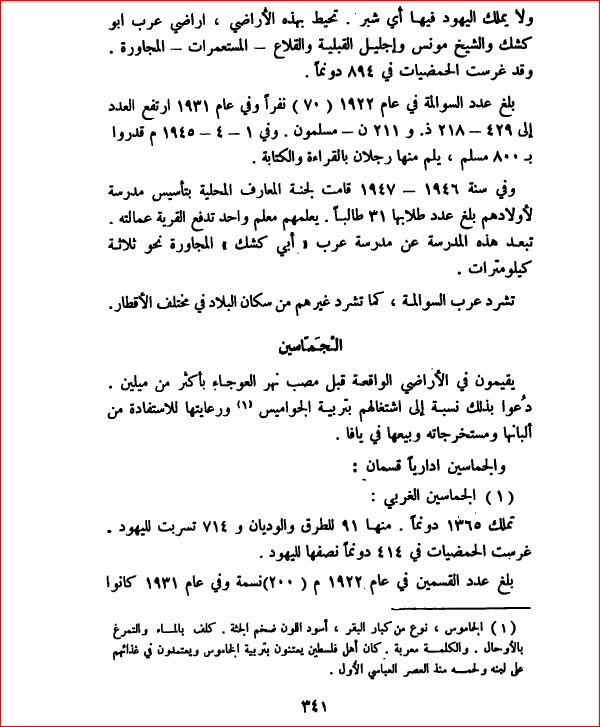 ولا يملك اليهود فيها أي شبر . تحيط بهذه الأراضي ، اراضي عرب ابو
كشك والشيخ مونس وإجليل القبلية والقلاع – المستعمرات – المجاورة .
وقد غرست الحمضيات في ٨٩٤ دونماً .
بلغ عدد السوالمة في عام ١٩٢٢ ( ٧٠ ) نفراً وفي عام ١٩٣١ ارتفع العدد
إلى ٤٢٩ – ٢١٨ ذ. و ٢١١ ن – مسلمون . وفي ١ – ٤ – ١٩٤٥ م قدروا
بـ ٨٠٠ مسلم ، يلم منها رجلان بالقراءة والكتابة .
وفي سنة ١٩٤٦ – ١٩٤٧ قامت لجنة المعارف المحلية بتأسيس مدرسة
لأولادهم بلغ عدد طلابها ٣١ طالباً . يعلمهم معلم واحد تدفع القرية عمالته .
تبعد هذه المدرسة عن مدرسة عرب « أبي كشك » المجاورة نحو ثلاثة
كيلومترات .
تشرد عرب السوالمة ، كما تشرد غيرهم من سكان البلاد في مختلف الأقطار.
الْجَمّاسين
يقيمون في الأراضي الواقعة قبل مصب نهر العوجاء بأكثر من ميلين .
دُعوا بذلك نسبة إلى اشتغالهم بتربية الجواميس (١) ورعايتها للاستفادة من
ألبانها ومستخرجاته وبيعها في يافا .
والجماسين ادارياً قسمان :
( ١ ) الجماسين الغربي :
تملك ١٣٦٥ دونماً . منها ٩١ للطرق والوديان و ٧١٤ تسربت لليهود .
غرست الحمضيات في ٤١٤ دونماً نصفها لليهود .
بلغ عدد القسمين في عام ١٩٢٢ م ( ٢٠٠ )نسمة وفي عام ١٩٣١ كانوا
( ١ ) الجاموس ، نوع من كبار البقر ، أسود اللون ضخم الجثة . كلف بالماء والتمرغ
بالأوحال . والكلمة معربة . كان أهل فلسطين يعتنون بتربية الجاموس ويعتمدون في غذائهم
على لبنه ولحمه منذ العصر العباسي الأول .
٣٤١